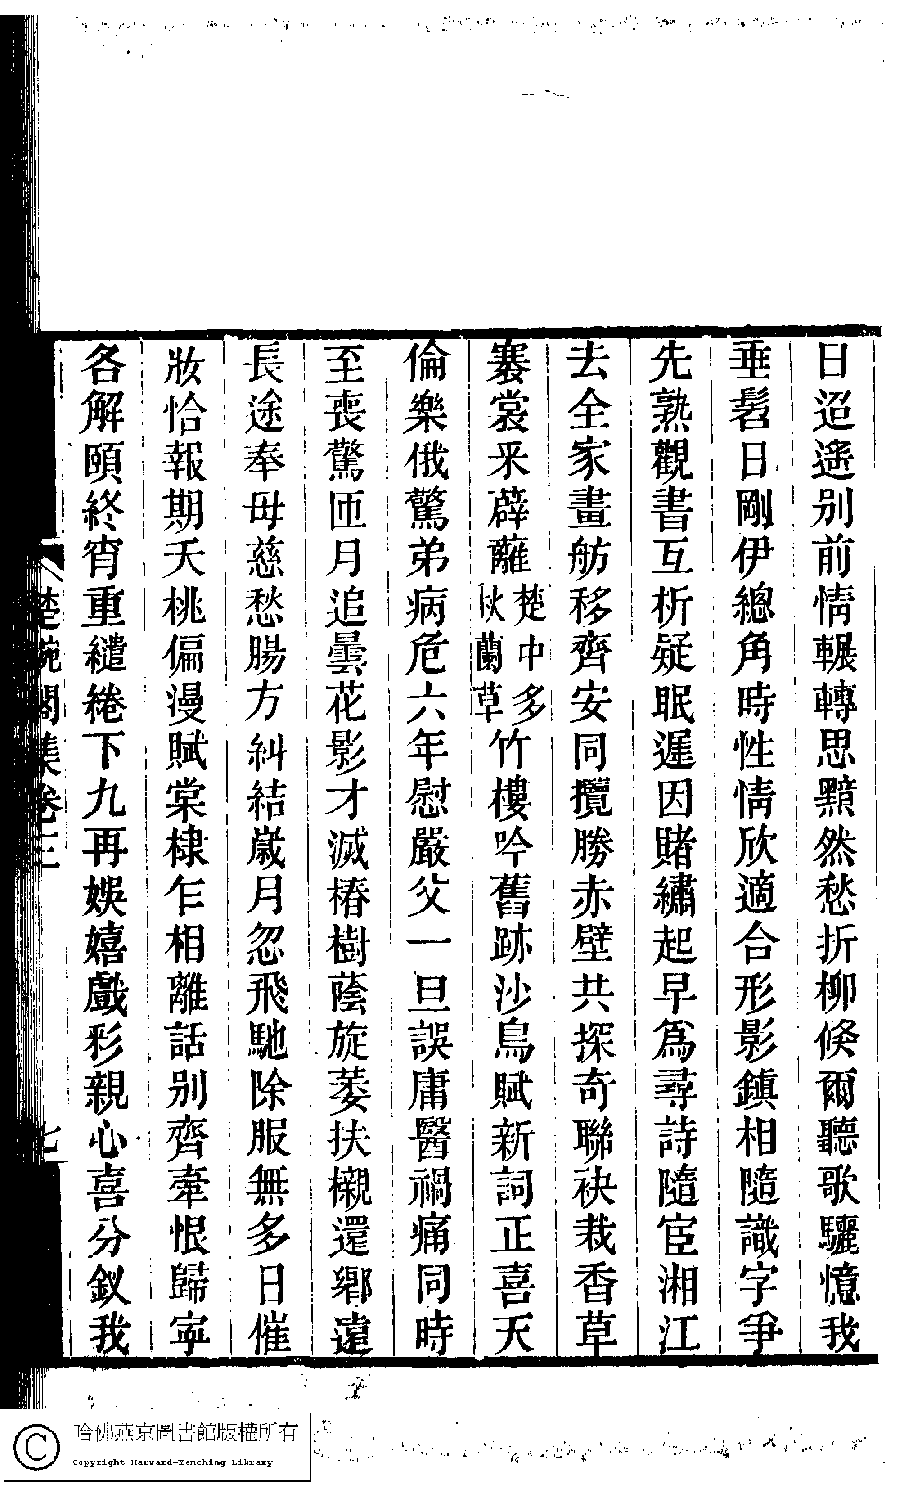 日迢遥别前情輾轉思黯然愁折柳倐爾聽歌驪憶我
垂髫日剛伊總角時性情欣適合形影鎮相隨識字爭
先熟觀書互析疑眠遲因賭繡起早爲尋詩隨宦湘江
去全家畫舫移齊安同攬勝赤壁共探奇聯袂栽香草
褰裳采薜蘿楚中多秋蘭草竹樓吟舊跡沙鳥賦新詞正喜天
倫樂俄驚弟病危六年慰嚴父一旦誤庸醫禍痛同時
至喪驚匝月追曇花影才滅椿樹蔭旋萎扶櫬還鄉遠
長途奉母慈愁腸方糾結歲月忽飛馳除服無多日催
妝恰報期夭桃偏漫賦棠棣乍相離話别齊牽恨歸寧
各解頤終宵重繾綣下九再娛嬉戲彩親心喜分釵我
楚畹閣集卷三
七
哈佛燕京圖書館版權所有
Copyright Harvard-Yenching Library